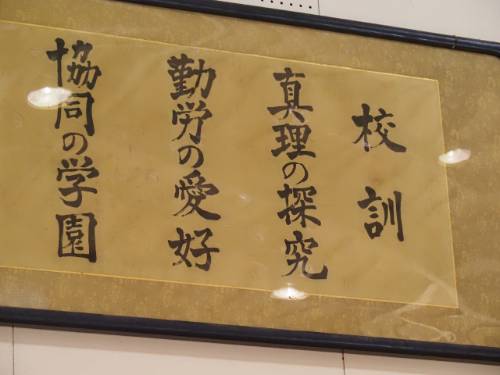 校訓
真理の探究
勤労の愛好
協同の学園